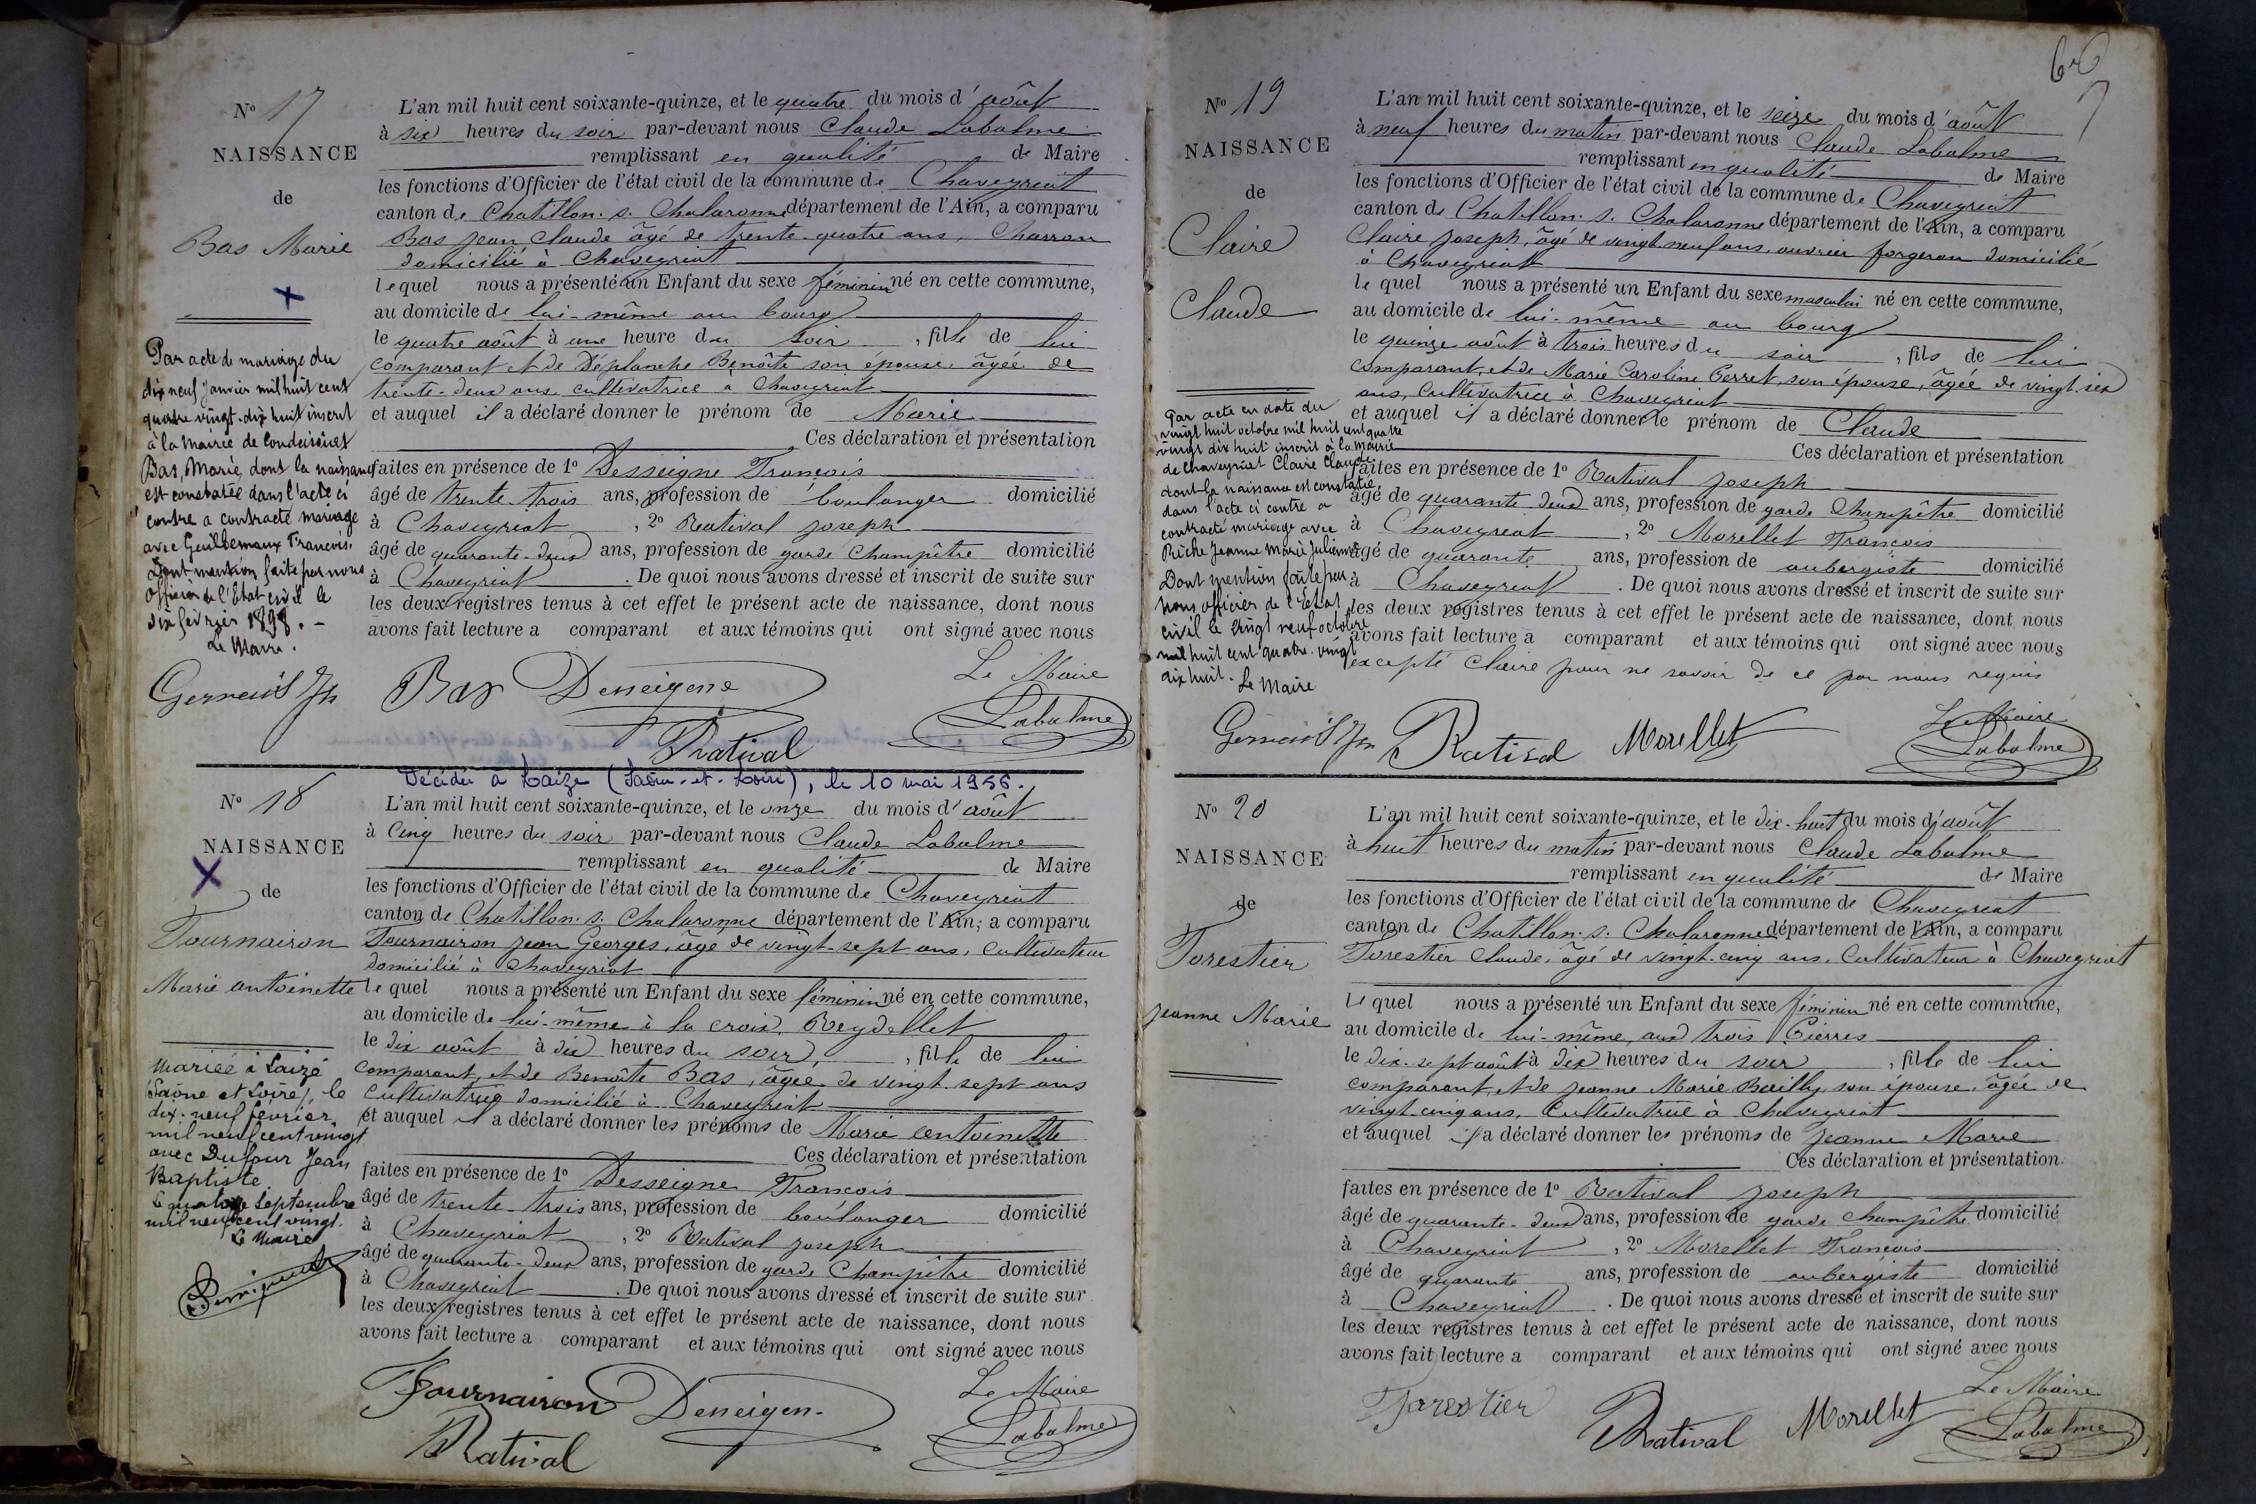 Nº 17
NAISSANCE
de
Bas Marie
Par acte de mariage du
dix neuf Janvier mil huit cent
quatre vingt-dix huit inscrit
à la Mairie de Condeissiat
Bas, Marie, dont la naissance
est constatée dans l'acte ci
contre a contracté mariage
avec Guillemaux François.
Dont mention faite par nous
Officier de l'Etat-civil le
dix février 1898. -
Le Maire.
L'an mil huit cent soixante-quinze, et le quatre du mois d'août
à six heures du soir par-devant nous Claude Labalme
remplissant en qualité de Maire
les fonctions d'Officier de l'état civil de la commune de Chaveyriat
canton de Chatillon. s. Chalaronne département de l'Ain, a comparu
Bas Jean Claude âgé de trente-quatre ans, Charron
domicilié à Chaveyriat
lequel nous a présenté un Enfant du sexe féminin né en cette commune,
au domicile de lui-même au bourg
le quatre août à une heure du soir, fille de lui
comparant et de Déplanche Benoîte son épouse âgée de
trente-deux ans cultivatrice à Chaveyriat
et auquel il a déclaré donner le prénom de Marie
Ces déclaration et présentation
faites en présence de 1º Desseigne François
âgé de trente-trois ans, profession de boulanger domicilié
à Chaveyriat, 2º Rativat Joseph
âgé de quarante-deux ans, profession de garde champêtre domicilié
à Chaveyriat. De quoi nous avons dressé et inscrit de suite sur
les deux registres tenus à cet effet le présent acte de naissance, dont nous
avons fait lecture a comparant et aux témoins qui ont signé avec nous
Bas
Le Maire
Labalme
Rativat
Nº 18
NAISSANCE
de
Tournairon
Marie antoinette
Mariée à Laizé
(Saône et Loire), le
dix-neuf février
mil neuf cent vingt
avec Dufour Jean
Baptiste
Le quatorze Septembre
mil neuf cent vingt.
Le Maire
Décédée à Laizé (Saône-et-Loire), le 10 mai 1956.
L'an mil huit cent soixante-quinze, et le onze du mois d'août
à cinq heures du soir par-devant nous Claude Labalme
remplissant en qualité de Maire
les fonctions d'Officier de l'état civil de la commune de Chaveyriat
canton de Chatillon. s. Chalaronne département de l'Ain, a comparu
Tournairon Jean Georges, âgé de vingt-sept ans, cultivateur
domicilié à Chaveyriat
lequel nous a présenté un Enfant du sexe féminin né en cette commune,
au domicile de lui-même à la croix Reydellet
le dix août à dix heures du soir, fille de lui
comparant, et de Benoîte Bas, âgée de vingt-sept ans
cultivatrice domicilié à Chaveyriat
et auquel il a déclaré donner les prénoms de Marie antoinette
Ces déclaration et présentation
faites en présence de 1º Desseigne François
âgé de trente-trois ans, profession de boulanger domicilié
à Chaveyriat, 2º Rativat Joseph
âgé de quarante-deux ans, profession de garde champêtre domicilié
à Chaveyriat. De quoi nous avons dressé et inscrit de suite sur
les deux registres tenus à cet effet le présent acte de naissance, dont nous
avons fait lecture a comparant et aux témoins qui ont signé avec nous
Tournairon
Le Maire
Labalme
Rativat
Nº 19
NAISSANCE
de
Claire
Claude
Par acte en date du
vingt huit octobre mil huit cent quatre
vingt dix huit inscrit à la mairie
de Chaveyriat Claire Claude
dont la naissance est constatée
dans l'acte ci contre a
contracté mariage avec
Riche Jeanne Marie Julienne
Dont mention faite par
nous officier de l'Etat
civil le vingt neuf octobre
mil huit cent quatre-vingt
dix huit.
Le Maire
L'an mil huit cent soixante-quinze, et le seize du mois d'août
à neuf heures du matin par-devant nous Claude Labalme
remplissant en qualité de Maire
les fonctions d'Officier de l'état civil de la commune de Chaveyriat
canton de Chatillon. s. Chalaronne département de l'Ain, a comparu
Claire Joseph, âgé de vingt-neuf ans, ouvrier forgeron domicilié
à Chaveyriat
lequel nous a présenté un Enfant du sexe masculin né en cette commune,
au domicile de lui-même au bourg
le quinze août à trois heures du soir, fils de lui
comparant, et de Marie Caroline Perret, son épouse, âgée de vingt-six
ans, cultivatrice à Chaveyriat
et auquel il a déclaré donner le prénom de Claude
Ces déclaration et présentation
faites en présence de 1º Rativat Joseph
âgé de quarante-deux ans, profession de garde champêtre domicilié
à Chaveyriat, 2º Morellet François
âgé de quarante ans, profession de aubergiste domicilié
à Chaveyriat. De quoi nous avons dressé et inscrit de suite sur
les deux registres tenus à cet effet le présent acte de naissance, dont nous
avons fait lecture a comparant et aux témoins qui ont signé avec nous
excepté Claire pour ne savoir de ce par nous requis
Rativat Morellet
Le Maire
Labalme
Nº 20
NAISSANCE
de
Forestier
Jeanne Marie
L'an mil huit cent soixante-quinze, et le dix-huit du mois d'août
à huit heures du matin par-devant nous Claude Labalme
remplissant en qualité de Maire
les fonctions d'Officier de l'état civil de la commune de Chaveyriat
canton de Chatillon. s. Chalaronne département de l'Ain, a comparu
Forestier Claude, âgé de vingt-cinq ans, Cultivateur à Chaveyriat
lequel nous a présenté un Enfant du sexe féminin né en cette commune,
au domicile de lui-même, aux trois Pierres
le dix-sept août à dix heures du soir, fille de lui
comparant, et de Jeanne Marie Bailly, son épouse, âgée de
vingt-cinq ans, Cultivatrice à Chaveyriat
et auquel il a déclaré donner les prénoms de Jeanne Marie
Ces déclaration et présentation
faites en présence de 1º Rativat Joseph
âgé de quarante-deux ans, profession de garde champêtre domicilié
à Chaveyriat, 2º Morellet François
âgé de quarante ans, profession de aubergiste domicilié
à Chaveyriat. De quoi nous avons dressé et inscrit de suite sur
les deux registres tenus à cet effet le présent acte de naissance, dont nous
avons fait lecture a comparant et aux témoins qui ont signé avec nous
Forestier
Rativat Morellet
Le Maire
Labalme